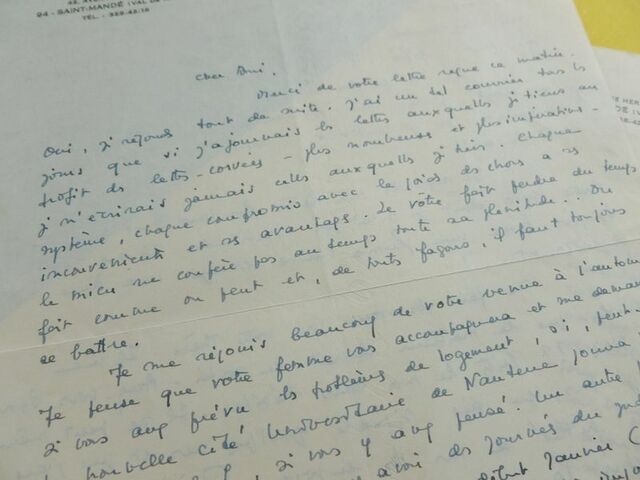 94 - SAINT-MANDÉ (VAL DE
TEL. : 328-42-16
cher Ami,
Merci de votre lettre reçue ce matin.
Oui, j'y réponds tout de suite. J'ai un tel courrier tous les
jours que si j'ajournais les lettres auxquelles je tiens au
profit des lettres-corvées - plus nombreuses et plus impératives -
je n'écrirais jamais celles auxquelles je tiens. Chaque
système, chaque compromis avec le poids des choses a ses
inconvénients et ses avantages. Le vôtre fait perdre du temps
le mien ne confère pas au temps toute sa plénitude... On
fait comme on peut et, de toutes façons, il faut toujours
se battre.
Je me réjouis beaucoup de votre venue à l'automne
Je pense que votre femme vous accompagnera et me demande
si vous avez prévu les problèmes de logement, si, peut-
nouvelle cité Universitaire de Nanterre
si vous y avez pensé. Un autre
des journées du
début Janvier (